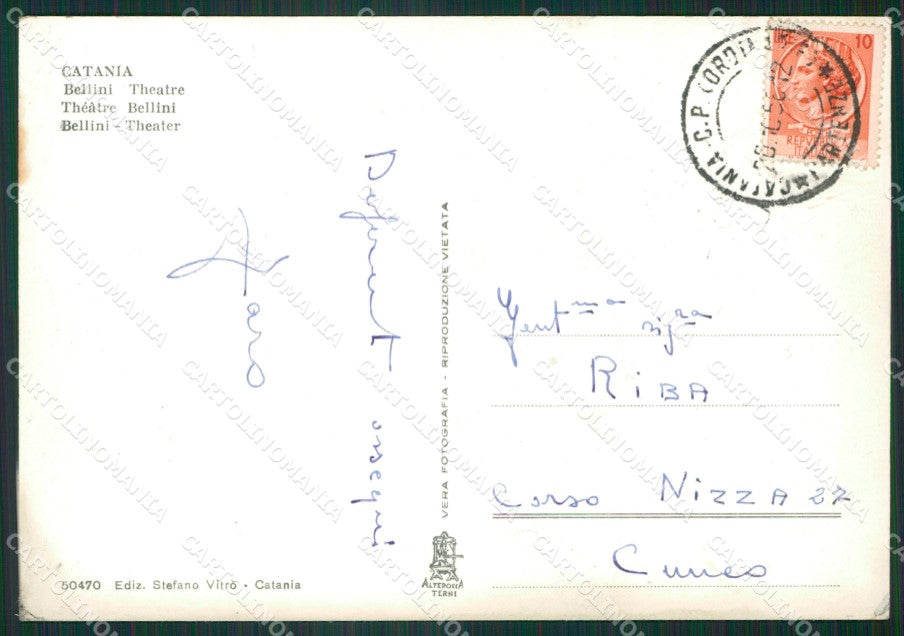 CATANIA
Bellini Theatre
Théâtre Bellini
Bellini - Theater
ossequi
VERA FOTOGRAFIA - RIPRODUZIONE VIETATA
10
CATANIA C.P. (ORD)
PARTENZE
Gent.ma sig.ra
RIBA
Corso NIZZA 27
Cuneo
ALTEROCCA
TERNI
50470 Ediz. Stefano Vitrò - Catania
CARTOLINOMANIA